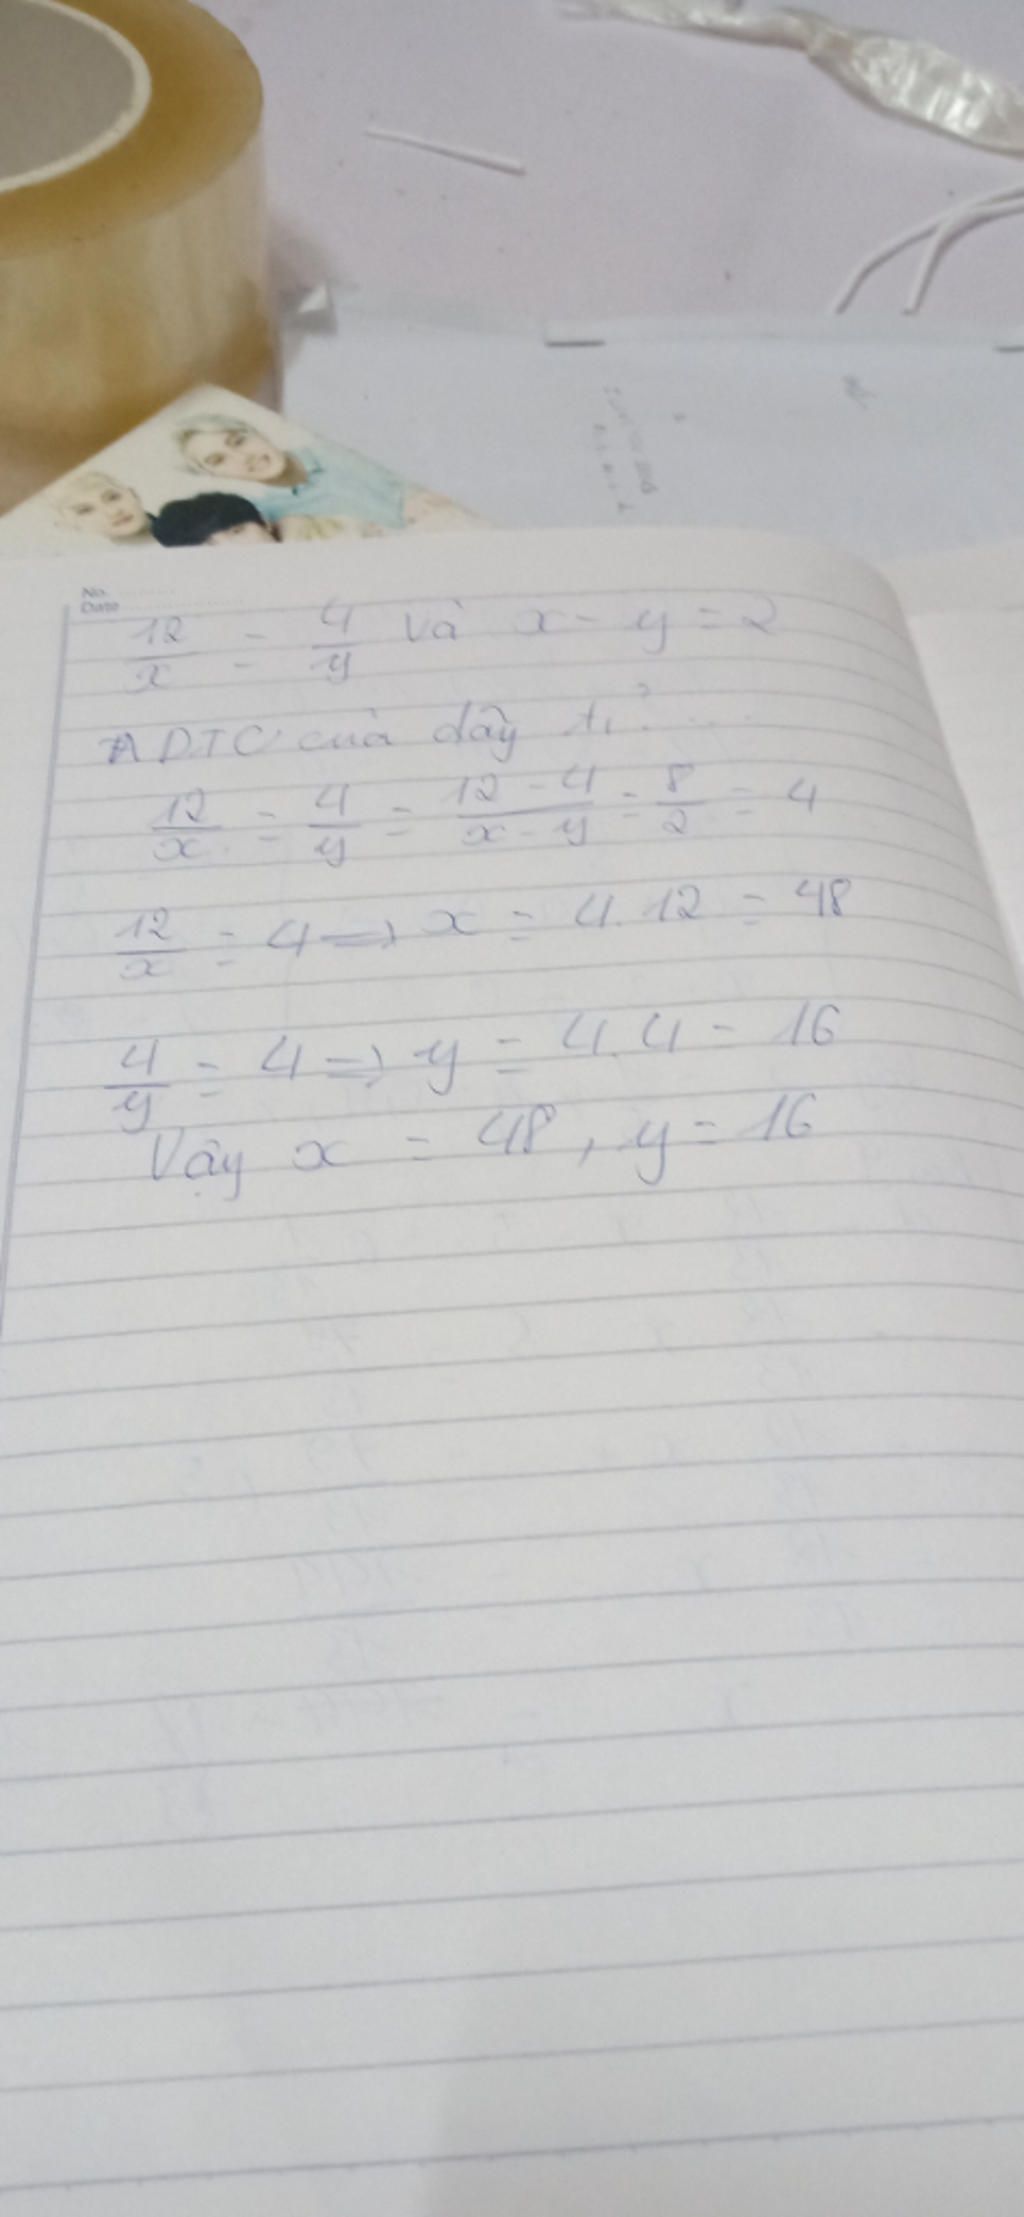 No.
Date
12/x = 4/y và x - y = 2
ADTC của dãy tỉ ....
12/x = 4/y = 12 - 4/x - y = 8/2 = 4
12/x = 4 => x = 4.12 = 48
4/y = 4 => y = 4.4 = 16
Vậy x = 48, y = 16